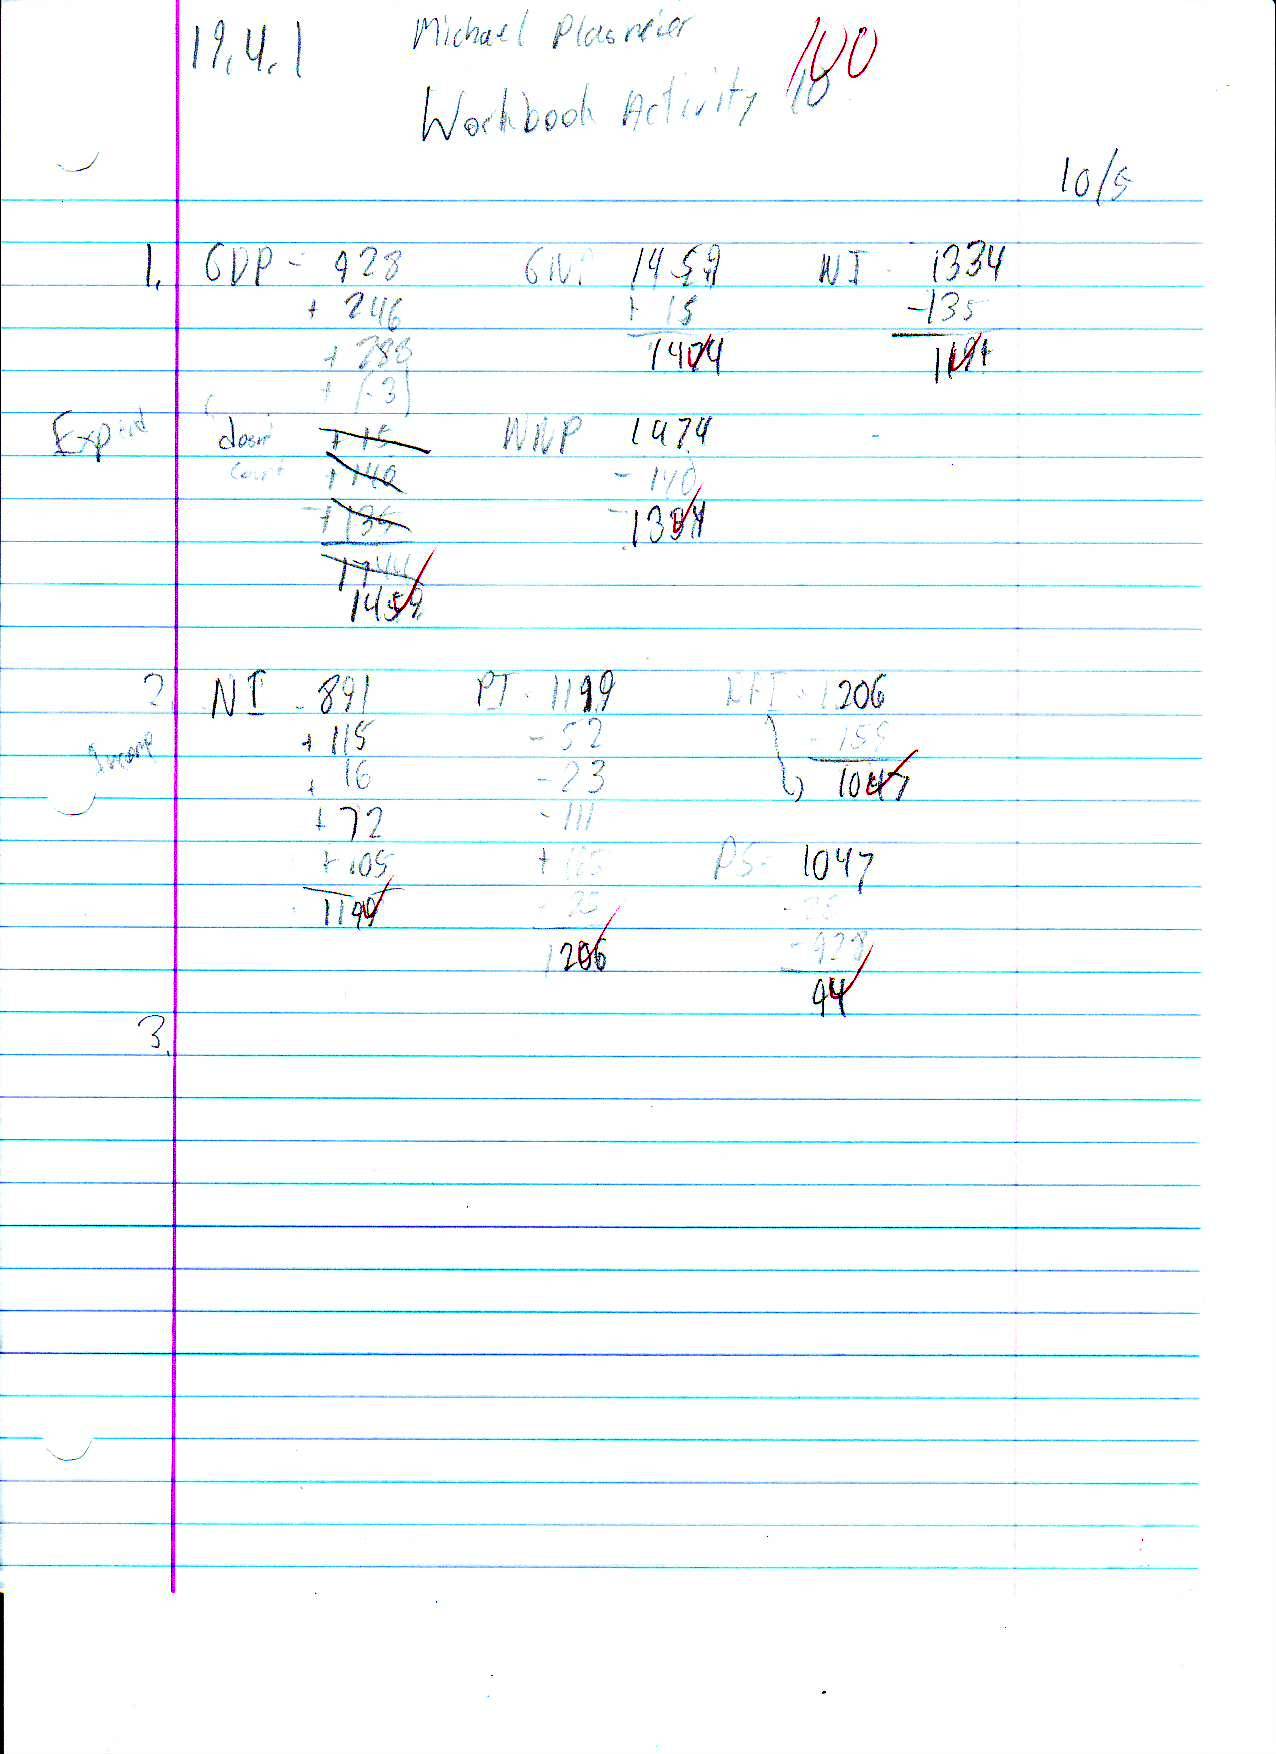 19.4.1 Michael Plasmeier 100
Workbook Activity 10
10/5
1. GDP - 928 GNP 1459 NI - 1334
+ 246 + 15 -135
+ 288 1474 1199
+ (-3)
Expend doesn't + 15 NNP 1474
count + 140 - 140
+ 135 1334
1744
1459
2. NI - 891 PI - 1199 DPI - 1206
+ 115 - 52 - 159
Income + 16 - 23 1047
+ 72 - 111
+ 105 PS - 1047
1199
1206 - 928
94
3.